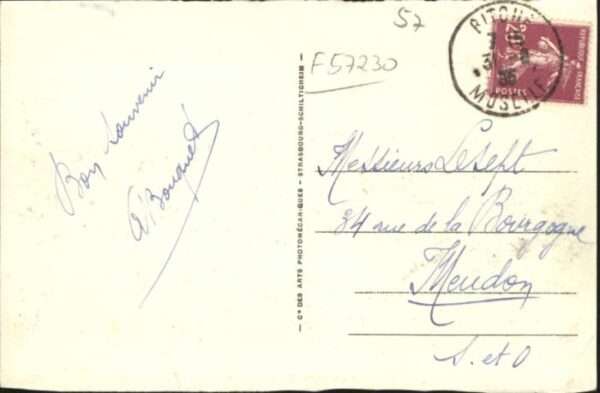 57
F57230
BITCHE
MOSELLE
35
20
REPUBLIQUE FRANÇAISE
POSTES
Bon souvenir
A Bouquet
Cie DES ARTS PHOTOMÉCANIQUES - STRASBOURG-SCHILTIGHEIM
Messieurs Lesept
84 rue de la Bourgogne
Meudon
S. et O